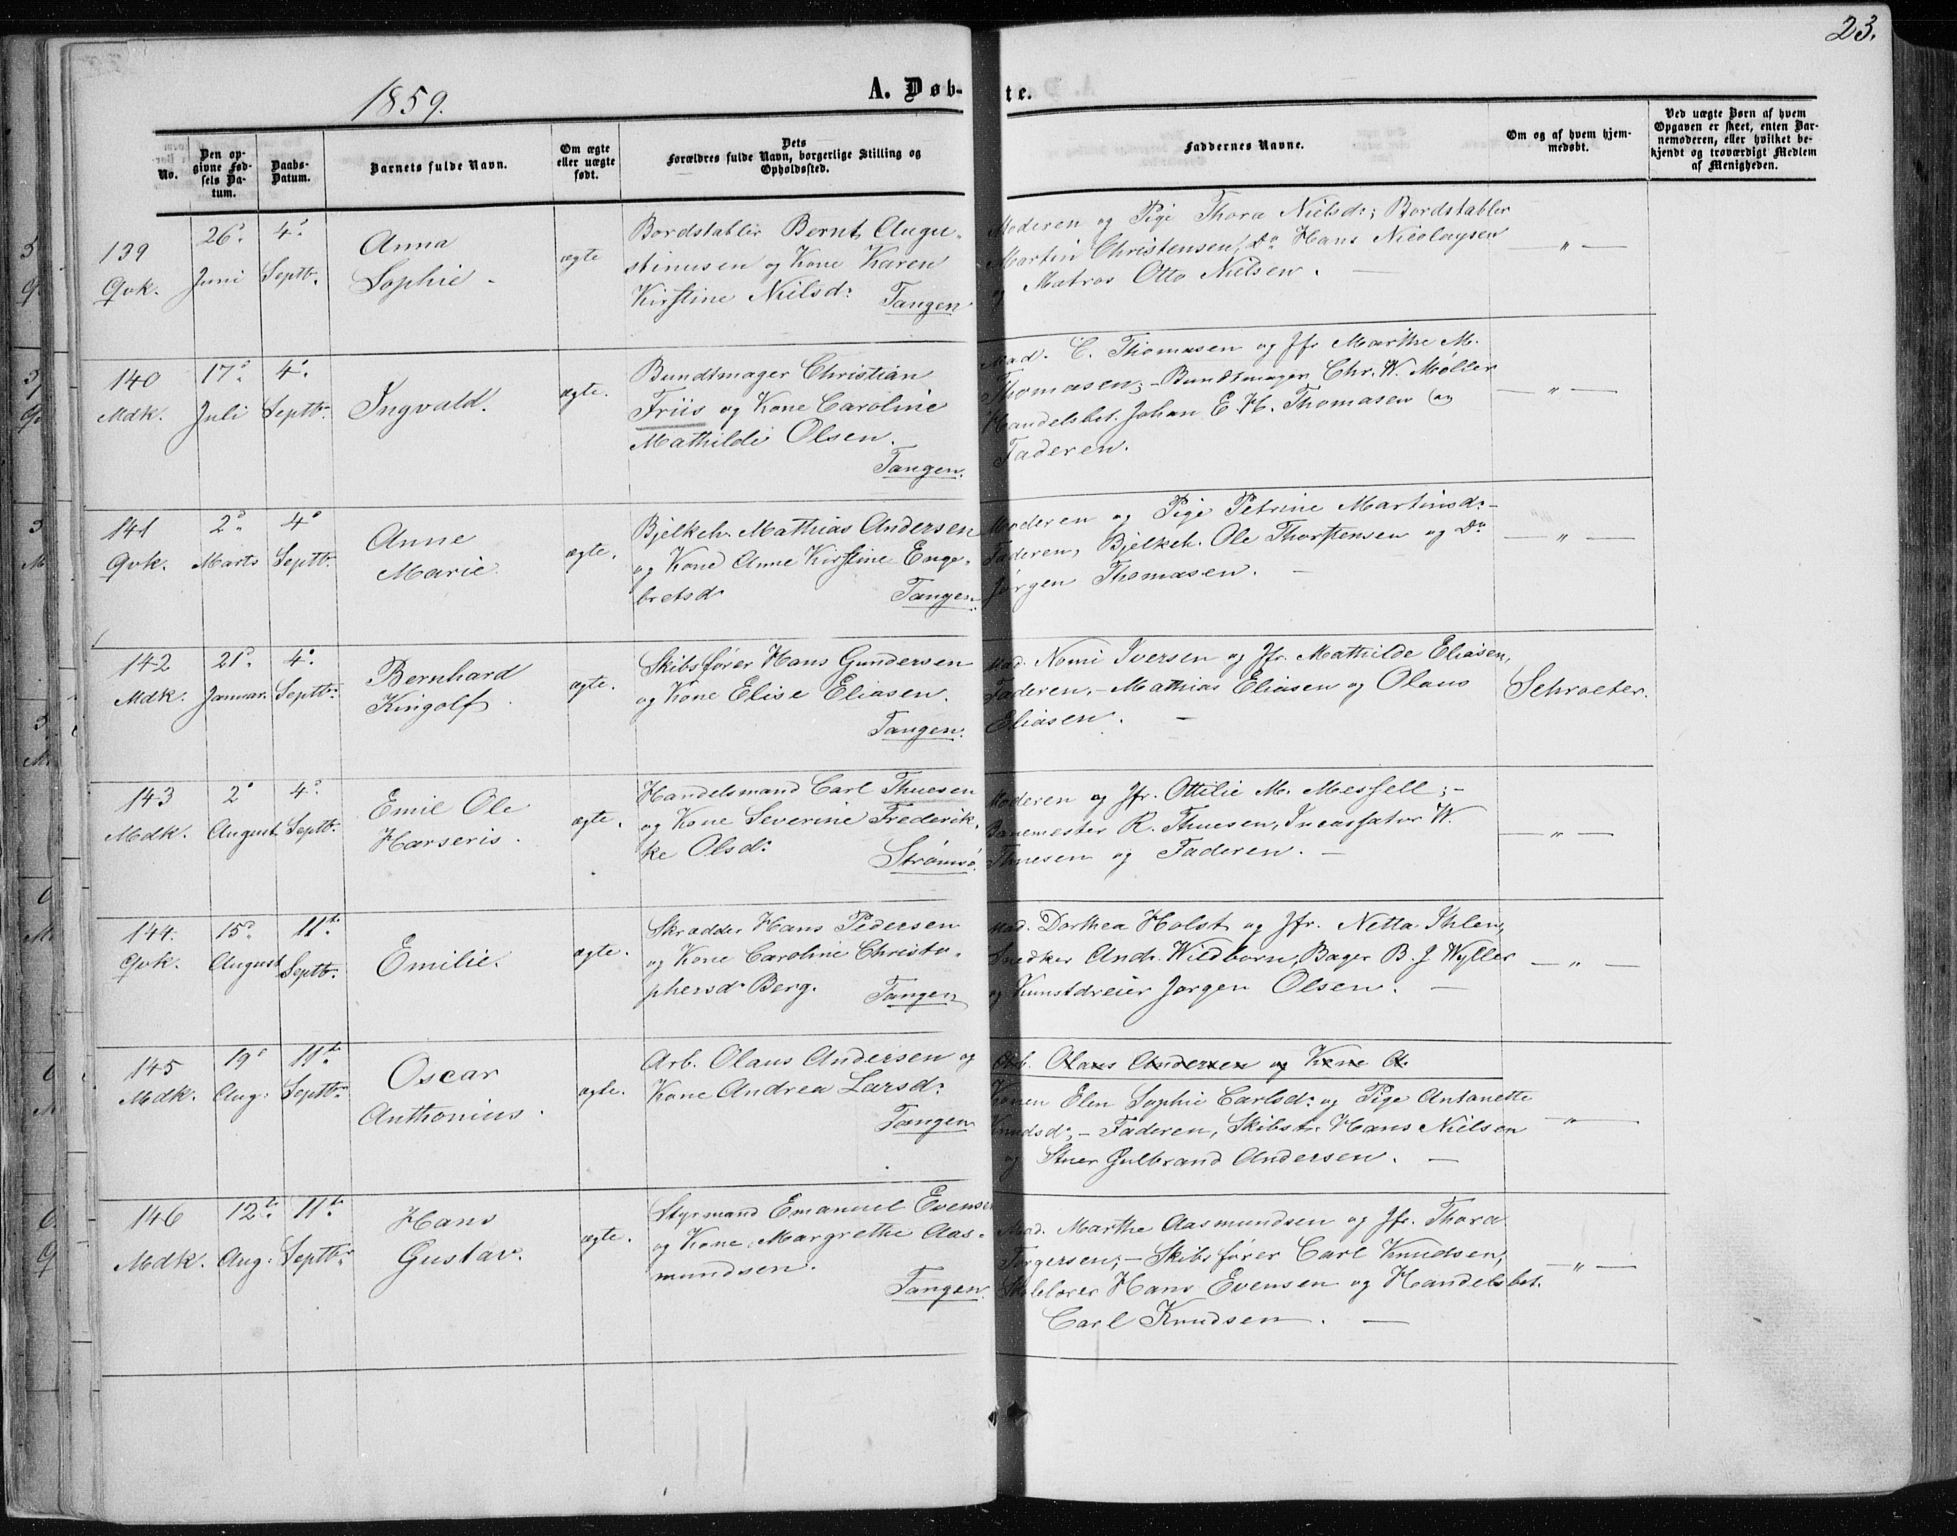 23.
1859.
A. Døb-
te.
No.
Den op-
givne Fød-
sels Da-
tum.
Daabs-
Datum.
Barnets fulde Navn.
Om ægte
eller uægte
født.
Dets
Forældres fulde Navn, borgerlige Stilling og
Opholdssted.
Faddernes Navne.
Om og af hvem hjem-
medøbt.
Ved uægte Børn af hvem
Opgaven er skeet, enten Bar-
nemoderen, eller hvilket be-
kjendt og troværdigt Medlem
af Menigheden.
139
Qvk.
26d.
Juni
4d.
Septbr.
Anna
Sophie
ægte
Bordstabler Bernt Augu-
stinusen og Kone Karen
Kirstine Nielsd:
Tangen
Moderen og Pige Thora Nielsd:; Bordstabler
Martin Christensen, Do Hans Nicolaysen
og Matros Otto Nielsen. —
— „ —
140
Mdk.
17d.
Juli
4d.
Septbr.
Ingvald.
ægte.
Bundtmager Christian
Friis og Kone Caroline
Mathilde Olsen.
Tangen.
Mad. C. Thomasen og Jfr Marthe M.
Thomasen; — Bundtmager Chr. W. Møller
Handelsbet. Johan E. H. Thomasen og
Faderen.
— „ —
141
Qvk.
2d.
Marts
4d
Septbr.
Anne
Marie
ægte.
Bjelkeh. Mathias Andersen
og Kone Anne Kirstine Enge-
bretsd:
Tangen.
Moderen og Pige Petrine Martinsd: —
Faderen, Bjelkeh. Ole Thorstensen og Do
Jørgen Thomasen. —
— „ —
142
Mdk.
21d.
Januar.
4d.
Septbr.
Bernhard
Kingolf.
ægte.
Skibsfører Hans Gundersen
og Kone Elise Eliasen.
Tangen.
Mad. Nomi Iversen og Jfr. Mathilde Eliasen,
Faderen, — Mathias Eliasen og Olaus
Eliasen. —
Schroeter.
143
Mdk.
2d
August
4d.
Septbr.
Emil Ole
Harseris.
ægte.
Handelsmand Carl Thuesen
og Kone Severine Frederik-
ke Olsd:
Strømsø.
Moderen og Jfr. Ottilie M. Messell; —
Banemester R. Thuesen, Incasfator W.
Thuesen og Faderen. —
— „ —
144.
Qvk.
15d.
August
11te.
Septbr.
Emilie.
ægte.
Skrædder Hans Pedersen
og Kone Caroline Christo-
phersd: Berg.
Tangen
Mad. Dorthea Holst og Jfr. Netta Ihlen,
Snedker Andr. Wildborn, Bager B. J Wyller
og Kunstdreier Jørgen Olsen. —
— „ —
145
Mdk.
19d
Aug:
11te.
Septbr.
Oscar
Anthonius.
ægte.
Arb. Olaus Andersen og
Kone Andrea Larsd:
Tangen
Arb. Olaus Andersen og Kone A.
Konen Elen Sophie Carlsd: og Pige Antonette
Knudsd:, — Faderen, Skibst. Hans Nielsen
og Stuer Gulbrand Andersen. —
— „ —
146
Mdk.
12te.
Aug:
11te.
Septbr.
Hans
Gustav.
ægte.
Styrmand Emanuel Evensen
og Kone Margrethe Aas-
mundsen.
Tangen.
Mad. Marthe Aasmundsen og Jfr. Thora
Torgersen; — Skibsfører Carl Knudsen,
Skolelærer Hans Evensen og Handelsbet.
Carl Knudsen. —
— „ —